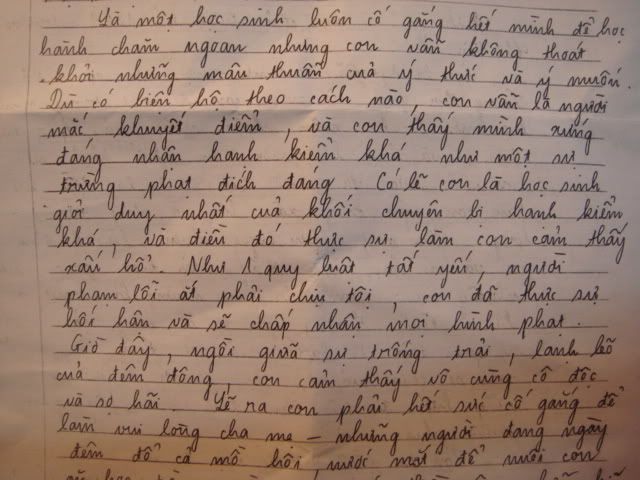 Là một học sinh luôn cố gắng hết mình để học
hành chăm ngoan nhưng con vẫn không thoát
khỏi những mâu thuẫn của ý thức và ý muốn.
Dù có biện hộ theo cách nào, con vẫn là người
mắc khuyết điểm, và con thấy mình xứng
đáng nhận hạnh kiểm khá như một sự
trừng phạt đích đáng. Có lẽ con là học sinh
giỏi duy nhất của khối chuyên bị hạnh kiểm
khá, và điều đó thực sự làm con cảm thấy
xấu hổ. Như 1 quy luật tất yếu, người
phạm lỗi ắt phải chịu tội, con đã thực sự
hối hận và sẽ chấp nhận mọi hình phạt.
Giờ đây, ngồi giữa sự trống trải, lạnh lẽo
của đêm đông, con cảm thấy vô cùng cô độc
và sợ hãi. Lẽ ra con phải hết sức cố gắng để
làm vui lòng cha mẹ – những người đang ngày
đêm đổ cả mồ hôi, nước mắt để nuôi con